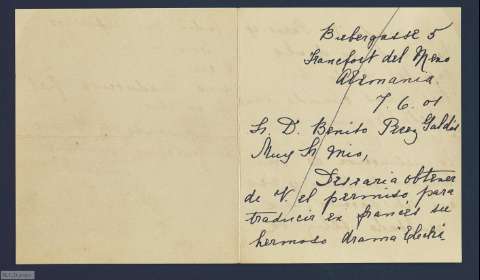 Biebergasse 5
Francfort del Meno
Alemania.
7.6.01
Sr. D. Benito Perez Galdós
Muy Sr mio,
Desearia obtener
de V. el permiso para
traducir en francés su
hermoso drama Electra